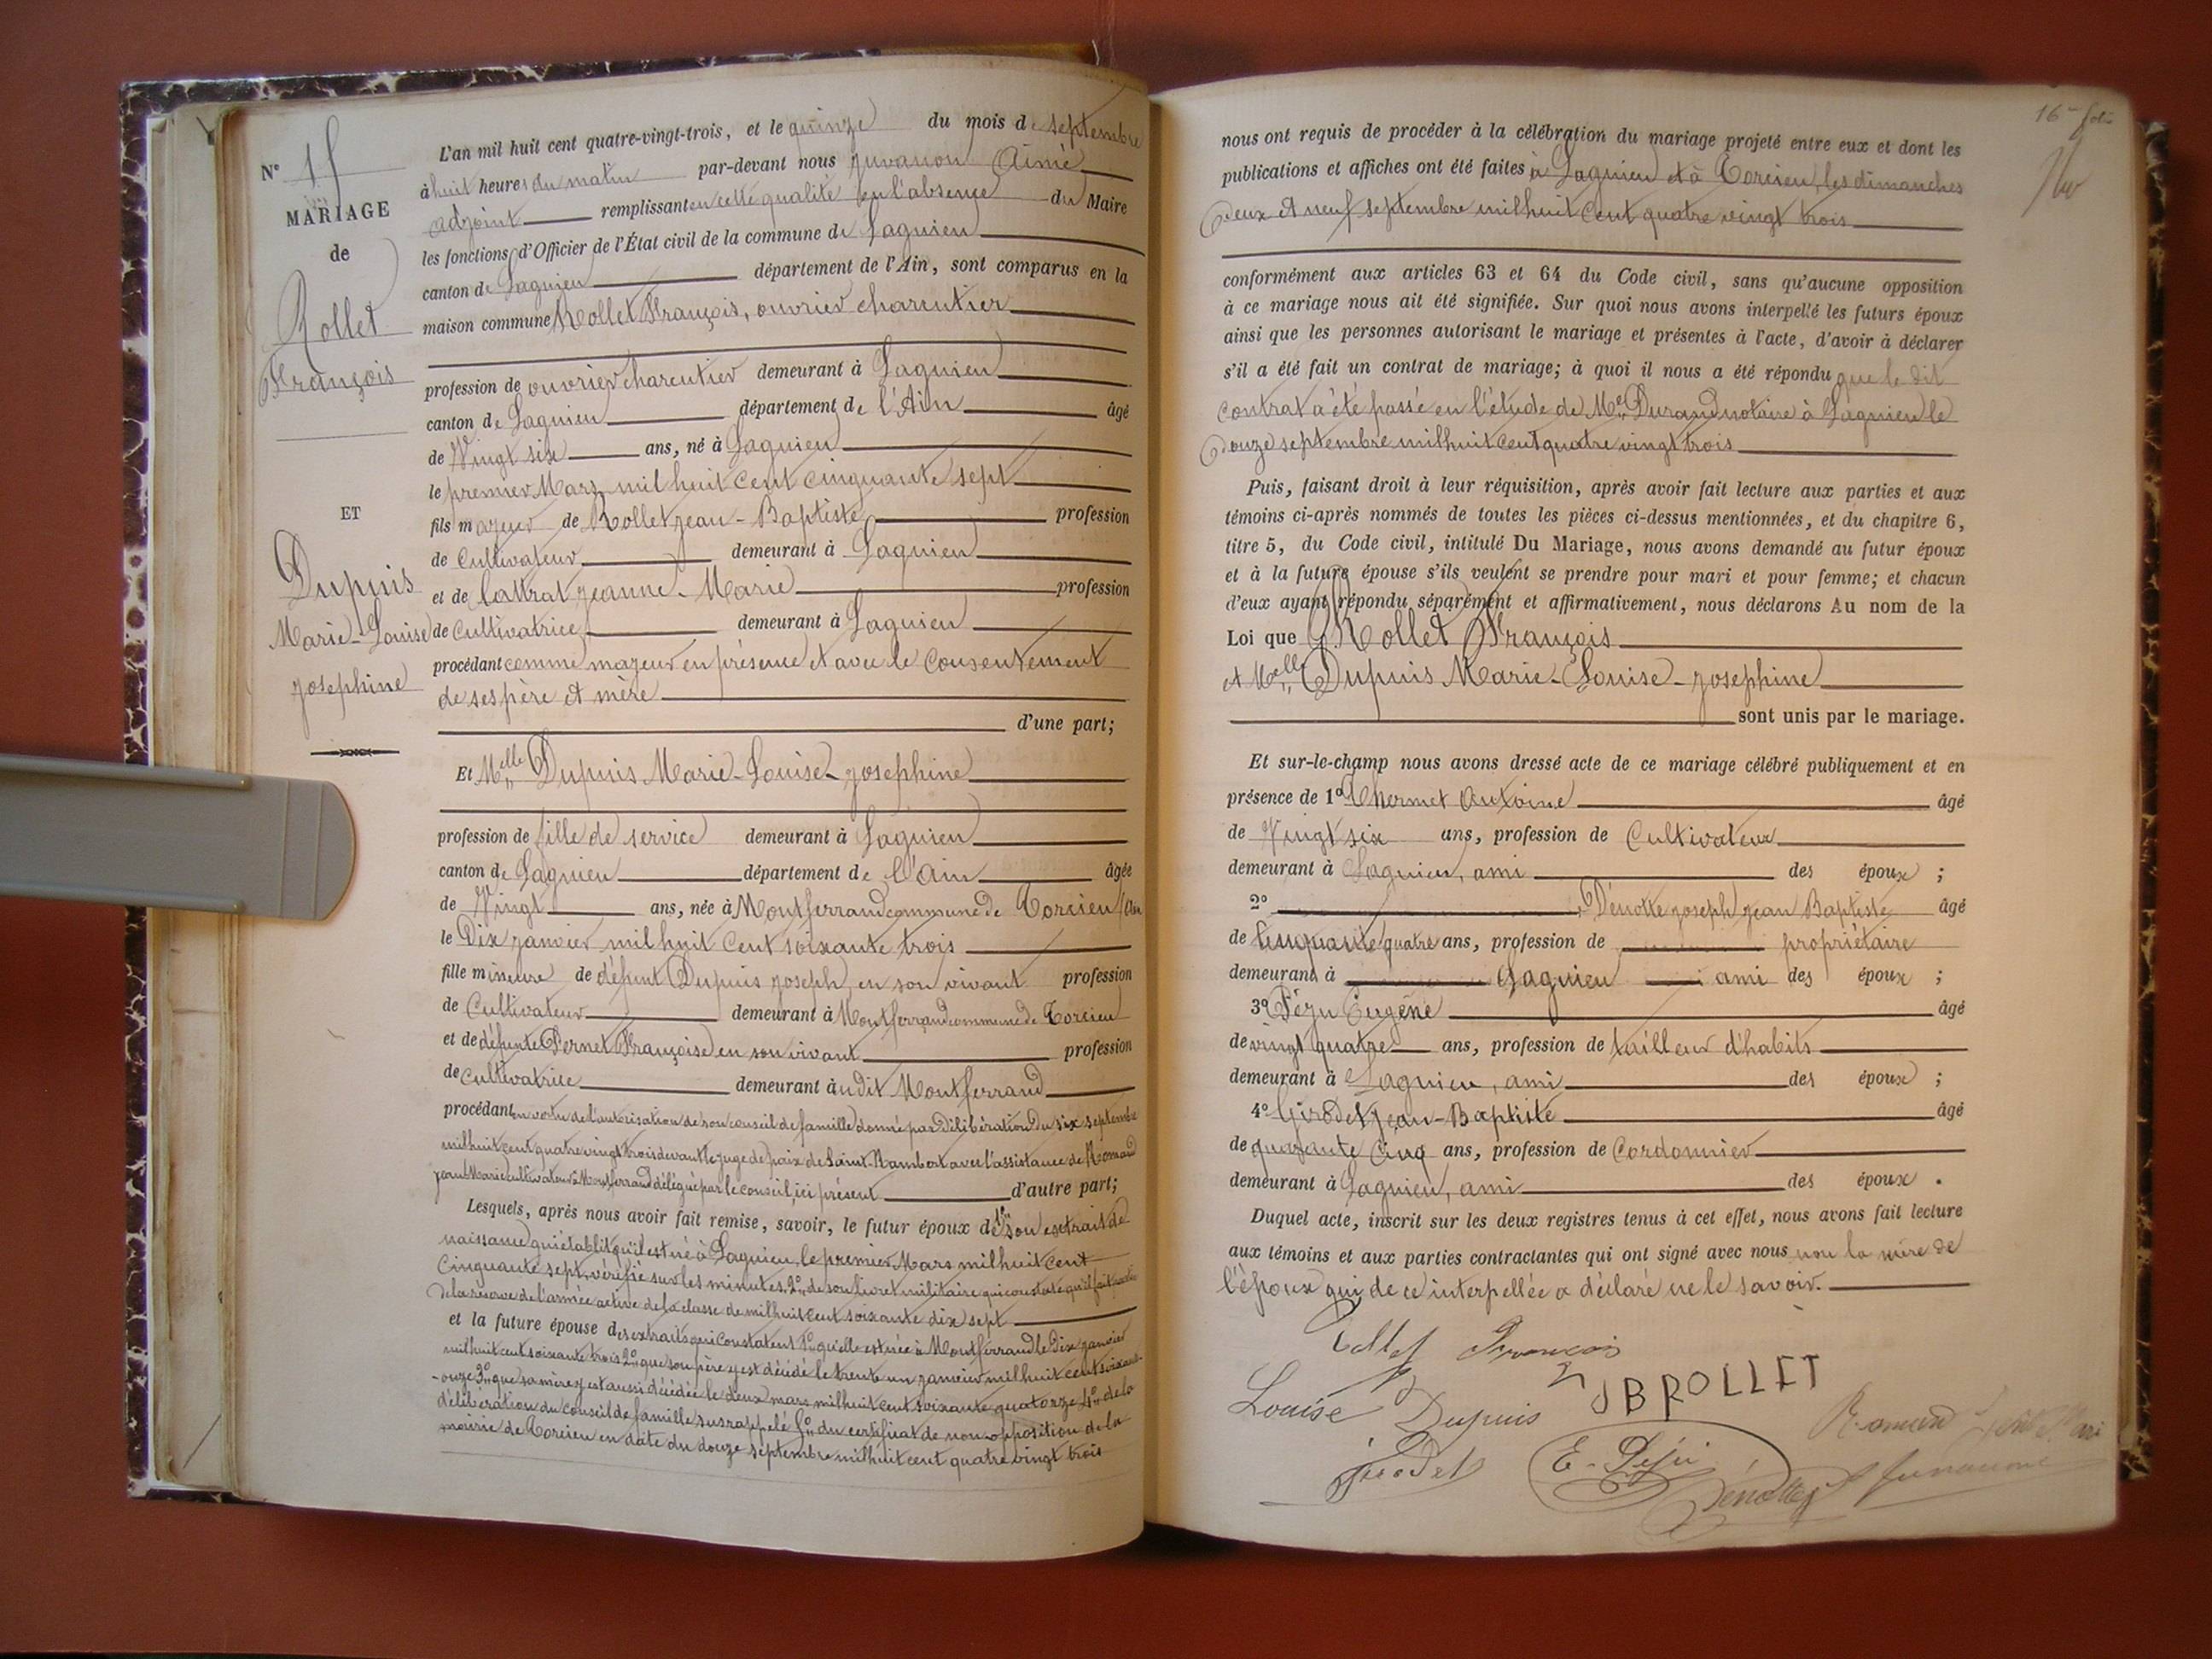 N° 15
MARIAGE
de
Rollet
François
ET
Dupuis
Marie-Louise
Josephine
L'an mil huit cent quatre-vingt-trois, et le quinze du mois de septembre
à huit heures du matin par-devant nous Juvanon Aimé
adjoint remplissant en cette qualité en l'absence du Maire
les fonctions d'Officier de l'État civil de la commune de Lagnieu
canton de Lagnieu département de l'Ain, sont comparus en la
maison commune Rollet François, ouvrier charentier
profession de ouvrier charentier demeurant à Lagnieu
canton de Lagnieu département de l'Ain âgé
de Vingt six ans, né à Lagnieu
le premier Mars mil huit cent cinquante sept
fils majeur de Rollet Jean-Baptiste profession
de Cultivateur demeurant à Lagnieu
et de Lattrat Jeanne-Marie profession
de Cultivatrice demeurant à Lagnieu
procédant comme majeur en présence et avec le consentement
de ses père et mère
d'une part;
Et Melle Dupuis Marie-Louise-Josephine
profession de fille de service demeurant à Lagnieu
canton de Lagnieu département de l'Ain âgée
de Vingt ans, née à Montferrand commune de Torcieu (Ain
le Dix janvier mil huit cent soixante trois
fille mineure de défunt Dupuis Joseph, en son vivant profession
de Cultivateur demeurant à Montferrand commune de Torcieu
et de défunte Pernet Françoise en son vivant profession
de cultivatrice demeurant audit Montferrand
procédant en vertu de l'autorisation de son conseil de famille donnée par Délibération du six septembre
mil huit cent quatre vingt trois devant le juge de paix de Saint-Rambert avec l'assistance de Romand
Jean Marie cultivateur à Montferrand délégué par le conseil, ici présent d'autre part;
Lesquels, après nous avoir fait remise, savoir, le futur époux de 1° son extrait de
naissance qui établit qu'il est né à Lagnieu, le premier Mars mil huit cent
cinquante sept, vérifié sur les minutes, 2° de son livret militaire qui constate qu'il fait partie
de la réserve de l'armée active de la classe de mil huit cent soixante dix sept
et la future épouse des extraits qui constatent 1° qu'elle est née à Montferrand le Dix janvier
mil huit cent soixante trois 2° que son père y est décédé le trente un janvier mil huit cent soixante
-onze 3° que sa mère y est aussi décédée le deux mars mil huit cent soixante quatorze 4° de la
délibération du conseil de famille susrappelé 5° du certificat de non opposition de la
mairie de Torcieu en date du douze septembre mil huit cent quatre vingt trois
16e folio
nous ont requis de procéder à la célébration du mariage projeté entre eux et dont les
publications et affiches ont été faites à Lagnieu et à Torcieu, les dimanches
deux et neuf septembre mil huit cent quatre vingt trois
conformément aux articles 63 et 64 du Code civil, sans qu'aucune opposition
à ce mariage nous ait été signifiée. Sur quoi nous avons interpellé les futurs époux
ainsi que les personnes autorisant le mariage et présentes à l'acte, d'avoir à déclarer
s'il a été fait un contrat de mariage; à quoi il nous a été répondu que le dit
contrat a été passé en l'étude de Me Durand notaire à Lagnieu le
douze septembre mil huit cent quatre vingt trois
Puis, faisant droit à leur réquisition, après avoir fait lecture aux parties et aux
témoins ci-après nommés de toutes les pièces ci-dessus mentionnées, et du chapitre 6,
titre 5, du Code civil, intitulé Du Mariage, nous avons demandé au futur époux
et à la future épouse s'ils veulent se prendre pour mari et pour femme; et chacun
d'eux ayant répondu séparément et affirmativement, nous déclarons Au nom de la
Loi que Rollet François
et Melle Dupuis Marie-Louise-Josephine
sont unis par le mariage.
Et sur-le-champ nous avons dressé acte de ce mariage célébré publiquement et en
présence de 1° Thermet Antoine âgé
de Vingt six ans, profession de Cultivateur
demeurant à Lagnieu, ami des époux ;
2° Dénotte Joseph Jean Baptiste âgé
de Cinquante quatre ans, profession de propriétaire
demeurant à Lagnieu ami des époux ;
3° Péju Eugène âgé
de vingt quatre ans, profession de tailleur d'habits
demeurant à Lagnieu, ami des époux ;
4° Girodet Jean-Baptiste âgé
de quarante cinq ans, profession de Cordonnier
demeurant à Lagnieu, ami des époux .
Duquel acte, inscrit sur les deux registres tenus à cet effet, nous avons fait lecture
aux témoins et aux parties contractantes qui ont signé avec nous non la mère de
l'époux qui de ce interpellée a déclaré ne le savoir.
Rollet François
Louise Dupuis JB ROLLET
Romand Jean Mari
Girodet E. Péju
Dénotte Juvanon